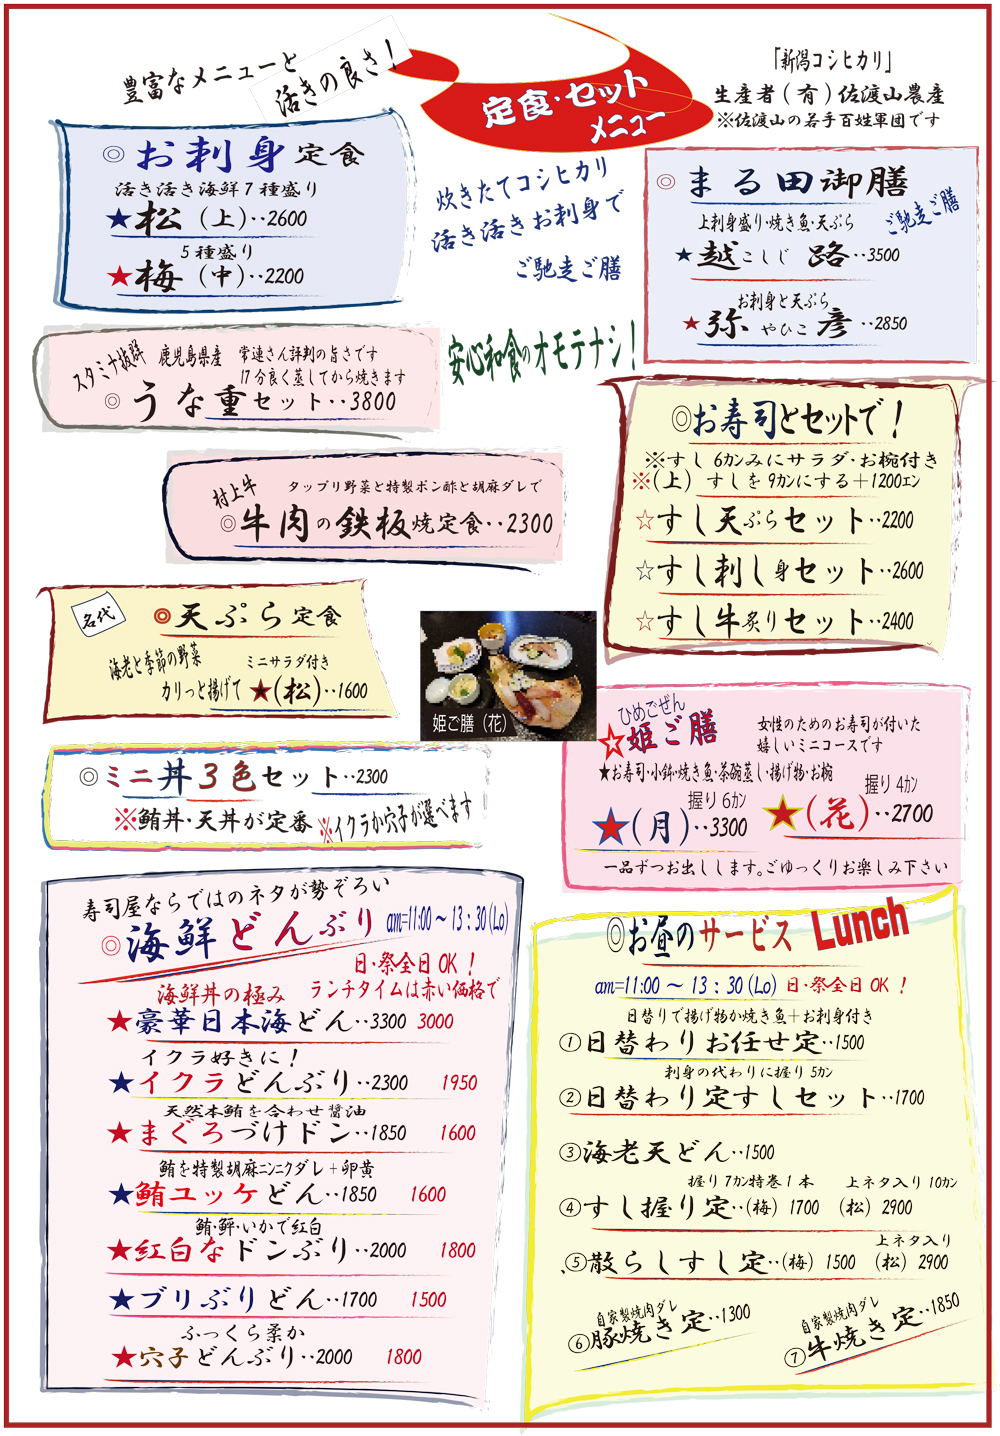 豊富なメニューと
活きの良さ！
定食・セット
メニュー
「新潟コシヒカリ」
生産者(有)佐渡山農産
※佐渡山の若手百姓軍団です
◎お刺身定食
活き活き海鮮7種盛り
★松(上)‥2600
5種盛り
★梅(中)‥2200
炊きたてコシヒカリ
活き活きお刺身で
ご馳走ご膳
◎まる田御膳
ご馳走ご膳
上刺身盛り・焼き魚・天ぷら
★越こしじ路‥3500
お刺身と天ぷら
★弥やひこ彦‥2850
安心和食のオモテナシ！
スタミナ抜群 鹿児島県産 常連さん評判の旨さです
17分良く蒸してから焼きます
◎うな重セット‥3800
◎お寿司とセットで！
※すし6カンみにサラダ・お椀付き
※(上)すしを9カンにする＋1200エン
☆すし天ぷらセット‥2200
☆すし刺し身セット‥2600
☆すし牛炙りセット‥2400
村上牛 タップリ野菜と特製ポン酢と胡麻ダレで
◎牛肉の鉄板焼定食‥2300
名代
◎天ぷら定食
海老と季節の野菜 ミニサラダ付き
カリっと揚げて ★(松)‥1600
姫ご膳（花）
ひめごぜん
☆姫ご膳
女性のためのお寿司が付いた
嬉しいミニコースです
★お寿司・小鉢・焼き魚・茶碗蒸し・揚げ物・お椀
握り6カン 握り4カン
★(月)‥3300 ★(花)‥2700
一品ずつお出しします。ごゆっくりお楽しみ下さい
◎ミニ丼3色セット‥2300
※鮪丼・天丼が定番 ※イクラか穴子が選べます
寿司屋ならではのネタが勢ぞろい
◎海鮮どんぶり am=11:00～13:30(Lo)
日・祭全日OK！
海鮮丼の極み ランチタイムは赤い価格で
★豪華日本海どん‥3300 3000
イクラ好きに！
★イクラどんぶり‥2300 1950
天然本鮪を合わせ醤油
★まぐろづけドン‥1850 1600
鮪を特製胡麻ニンニクダレ＋卵黄
★鮪ユッケどん‥1850 1600
鮪・鮃・いかで紅白
★紅白なドンぶり‥2000 1800
★ブリぶりどん‥1700 1500
ふっくら柔か
★穴子どんぶり‥2000 1800
◎お昼のサービス Lunch
am=11:00～13:30(Lo) 日・祭全日OK！
日替りで揚げ物か焼き魚＋お刺身付き
①日替わりお任せ定‥1500
刺身の代わりに握り5カン
②日替わり定すしセット‥1700
③海老天どん‥1500
握り7カン特巻1本 上ネタ入り10カン
④すし握り定‥(梅)1700 (松)2900
上ネタ入り
⑤散らしすし定‥(梅)1500 (松)2900
自家製焼肉ダレ
⑥豚焼き定‥1300
自家製焼肉ダレ
⑦牛焼き定‥1850